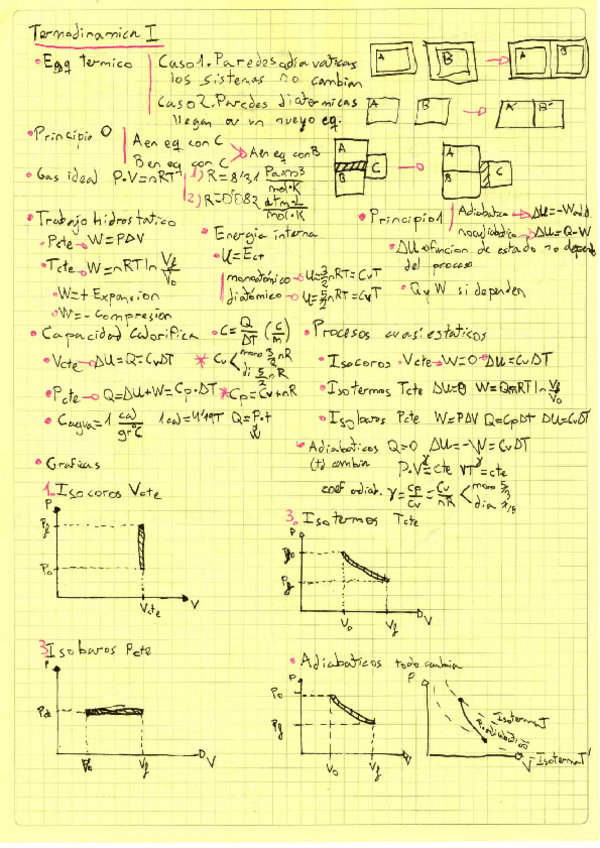 Termodinamica I
• Eqq termico
Caso 1. Paredes adiavaticas
los sistemas no cambian
Caso 2. Paredes diatermicas
llegan a un nuevo eq.
A
B
A B
A
B
A' B'
• Principio 0
A en eq con C
B en eq con C
A en eq con B
A
B
C
A
B
C
• Gas ideal P·V=nRT
1) R=8'31 Pa·m3/mol·K
2) R=0'082 atm·L/mol·K
• Trabajo hidrostatico
• Pcte → W=PΔV
• Tcte → W=nRT ln Vf/V0
• W=+ Expansion
• W=- Compresion
• Energia interna
• U=Ect
monoatómico → U=3/2nRT=CvT
diatómico → U=5/2nRT=CvT
• Principio 1
Adiabatica → ΔU=-Wad.
noadiabatica → ΔU=Q-W
• ΔU → funcion de estado no depende
del proceso
• Q y W si dependen
• Capacidad Calorifica • C=Q/ΔT (C/m)
• Vcte → ΔU=Q=CvΔT * Cv < mono 3/2nR
di 5/2nR
• Pcte → Q=ΔU+W=Cp·ΔT * Cp=Cv+nR
• Cagua=1 cal/gr°C 1cal=4'19J Q=P·t
W
• Procesos cuasiestaticos
• Isocoros · Vcte → W=0 → ΔU=CvΔT
• Isotermos Tcte ΔU=0 W=Q=nRT ln Vf/V0
• Isobaros Pcte W=PΔV Q=CpΔt ΔU=CvΔT
• Adiabaticos Q=0 ΔU=-W=CvΔT
(t) cambia P·Vγ=cte VTγ=cte
coef adiab. γ=Cp/Cv=Cv/nR < mono 5/3
dia 7/5
• Graficas
1. Isocoros Vcte
P
Pf
P0
Vcte
V
3. Isotermos Tcte
P
P0
Pf
V0
Vf
V
3. Isobaros Pcte
P
V0
Vf
V
• Adiabaticos todo cambia
P
P0
Pf
V0
Vf
V
P
Isoterma T
Adiabatica
Isoterma T'
V